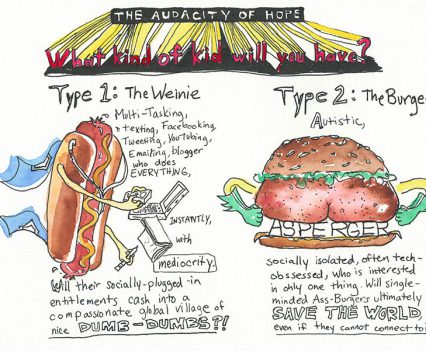 THE AUDACITY OF HOPE
What kind of kid will you have?
Type 1: The Weinie
Multi-Tasking,
n texting, Facebooking,
Tweeting, YouTubing,
Emailing, blogger
who does
EVERYTHING,
INSTANTLY,
with
mediocrity.
Will their socially-plugged-in
entitlements cash into a
compassionate global village of
nice DUMB-DUMBS?!
Type 2: The Burge
Autistic,
ASPERGER
socially isolated, often tech-
obsessed, who is interested
in only one thing. Will single-
minded Ass-Burgers ultimately
SAVE THE WORLD,
even if they cannot connect to i